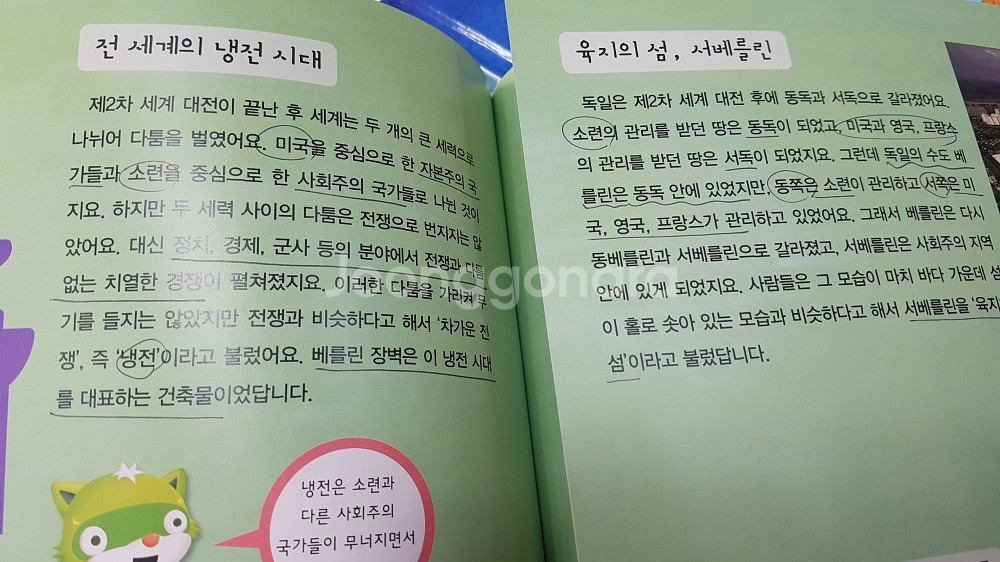 전 세계의 냉전 시대
제2차 세계 대전이 끝난 후 세계는 두 개의 큰 세력으로
나뉘어 다툼을 벌였어요. 미국을 중심으로 한 자본주의 국
가들과 소련을 중심으로 한 사회주의 국가들로 나뉜 것이
지요. 하지만 두 세력 사이의 다툼은 전쟁으로 번지지는 않
았어요. 대신 정치, 경제, 군사 등의 분야에서 전쟁과 다름
없는 치열한 경쟁이 펼쳐졌지요. 이러한 다툼을 가리켜 무
기를 들지는 않았지만 전쟁과 비슷하다고 해서 ‘차가운 전
쟁’, 즉 ‘냉전’이라고 불렀어요. 베를린 장벽은 이 냉전 시대
를 대표하는 건축물이었답니다.
냉전은 소련과
다른 사회주의
국가들이 무너지면서
육지의 섬, 서베를린
독일은 제2차 세계 대전 후에 동독과 서독으로 갈라졌어요.
소련의 관리를 받던 땅은 동독이 되었고, 미국과 영국, 프랑스
의 관리를 받던 땅은 서독이 되었지요. 그런데 독일의 수도 베
를린은 동독 안에 있었지만, 동쪽은 소련이 관리하고 서쪽은 미
국, 영국, 프랑스가 관리하고 있었어요. 그래서 베를린은 다시
동베를린과 서베를린으로 갈라졌고, 서베를린은 사회주의 지역
안에 있게 되었지요. 사람들은 그 모습이 마치 바다 가운데 섬
이 홀로 솟아 있는 모습과 비슷하다고 해서 서베를린을 ‘육지
섬’이라고 불렀답니다.
Joonggonara